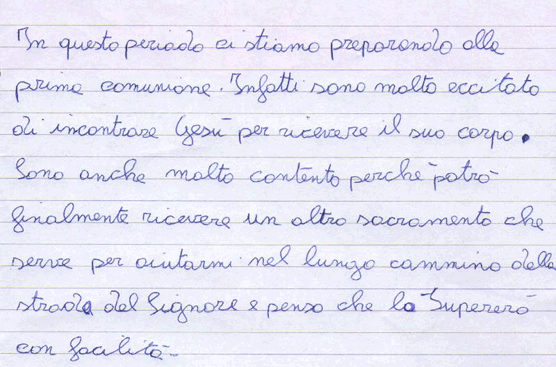 In questo periodo ci stiamo preparando alla
prima comunione. Infatti sono molto eccitato
di incontrare Gesù per ricevere il suo corpo.
Sono anche molto contento perchè potrò
finalmente ricevere un altro sacramento che
serve per aiutarmi nel lungo cammino della
strada del Signore e penso che lo supererò
con facilità-